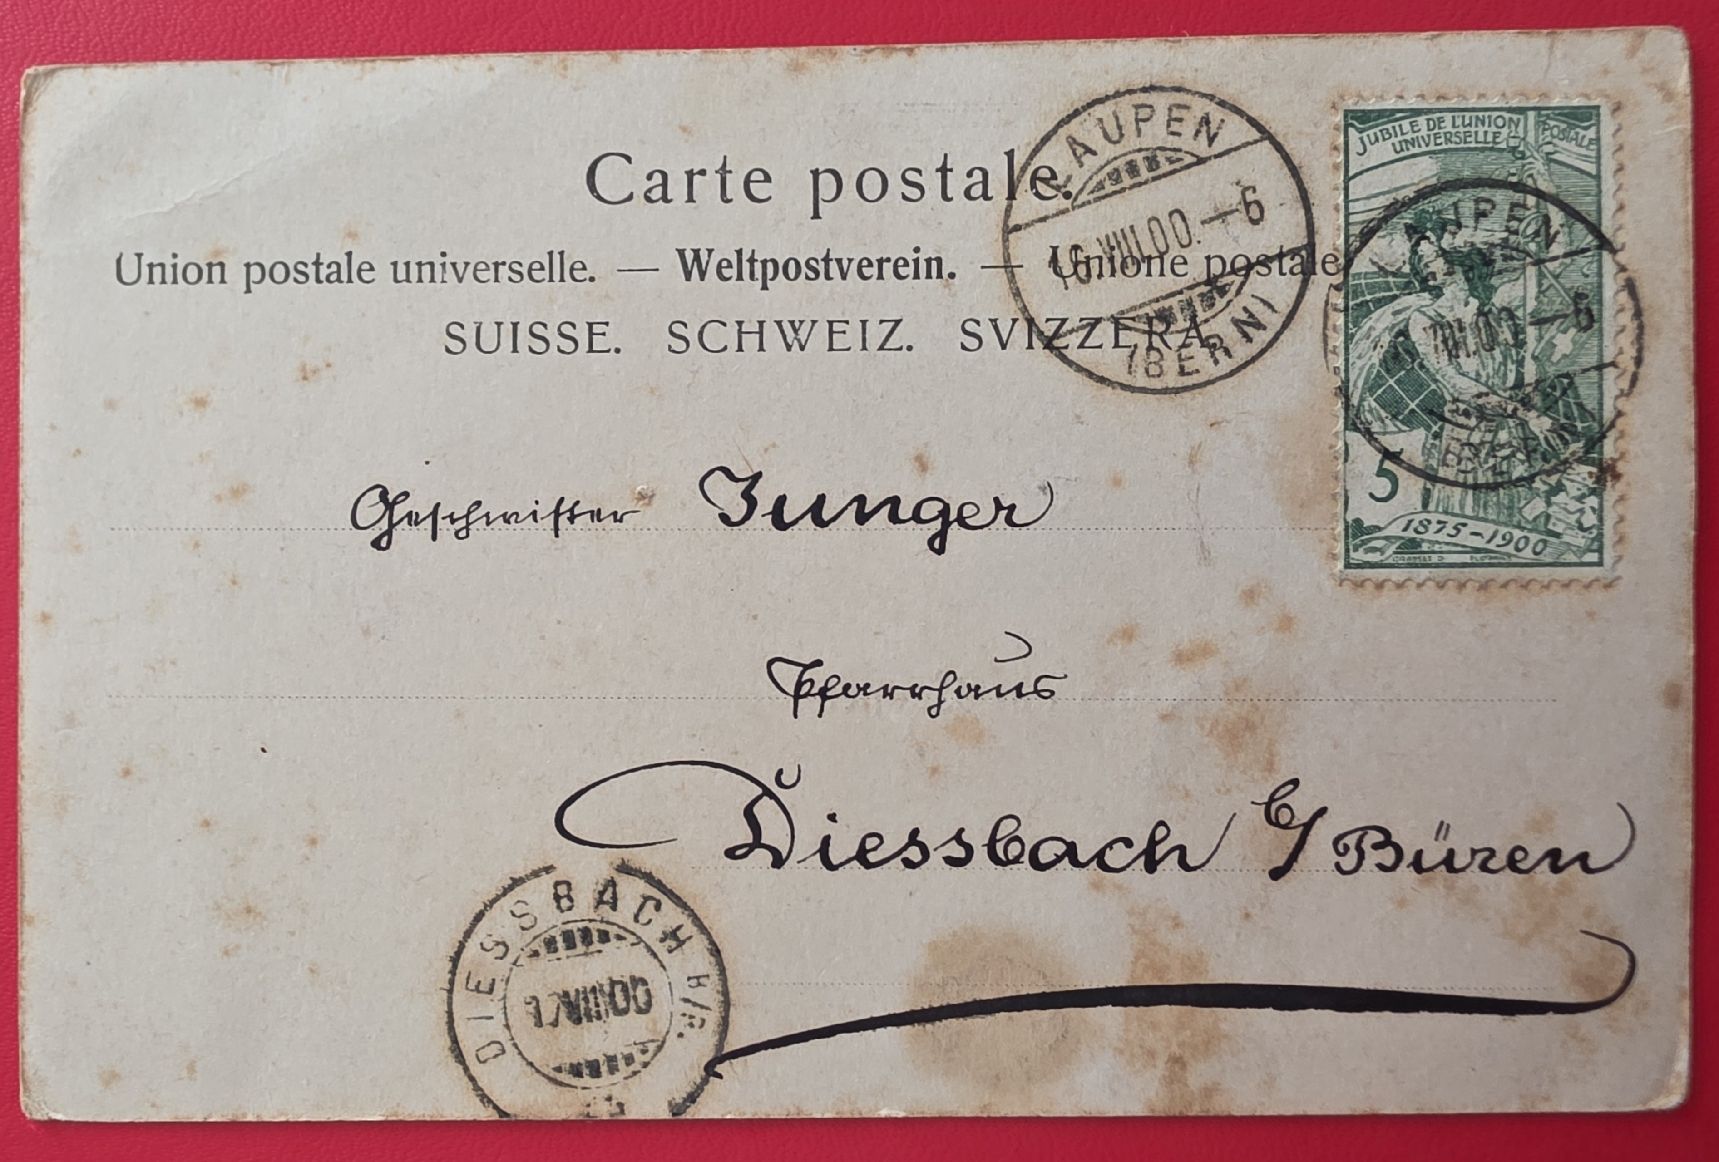 Carte postale.
Union postale universelle. — Weltpostverein. — Unione postale
SUISSE. SCHWEIZ. SVIZZERA
LAUPEN
16.VIII.00.—6
(BERN)
JUBILE DE L'UNION POSTALE
UNIVERSELLE
LAUPEN
VIII.00—6
5
1875-1900
Geschwister Junger
Pfarrhaus
Diessbach b/ Büren
DIESSBACH B/B.
17.VIII.00